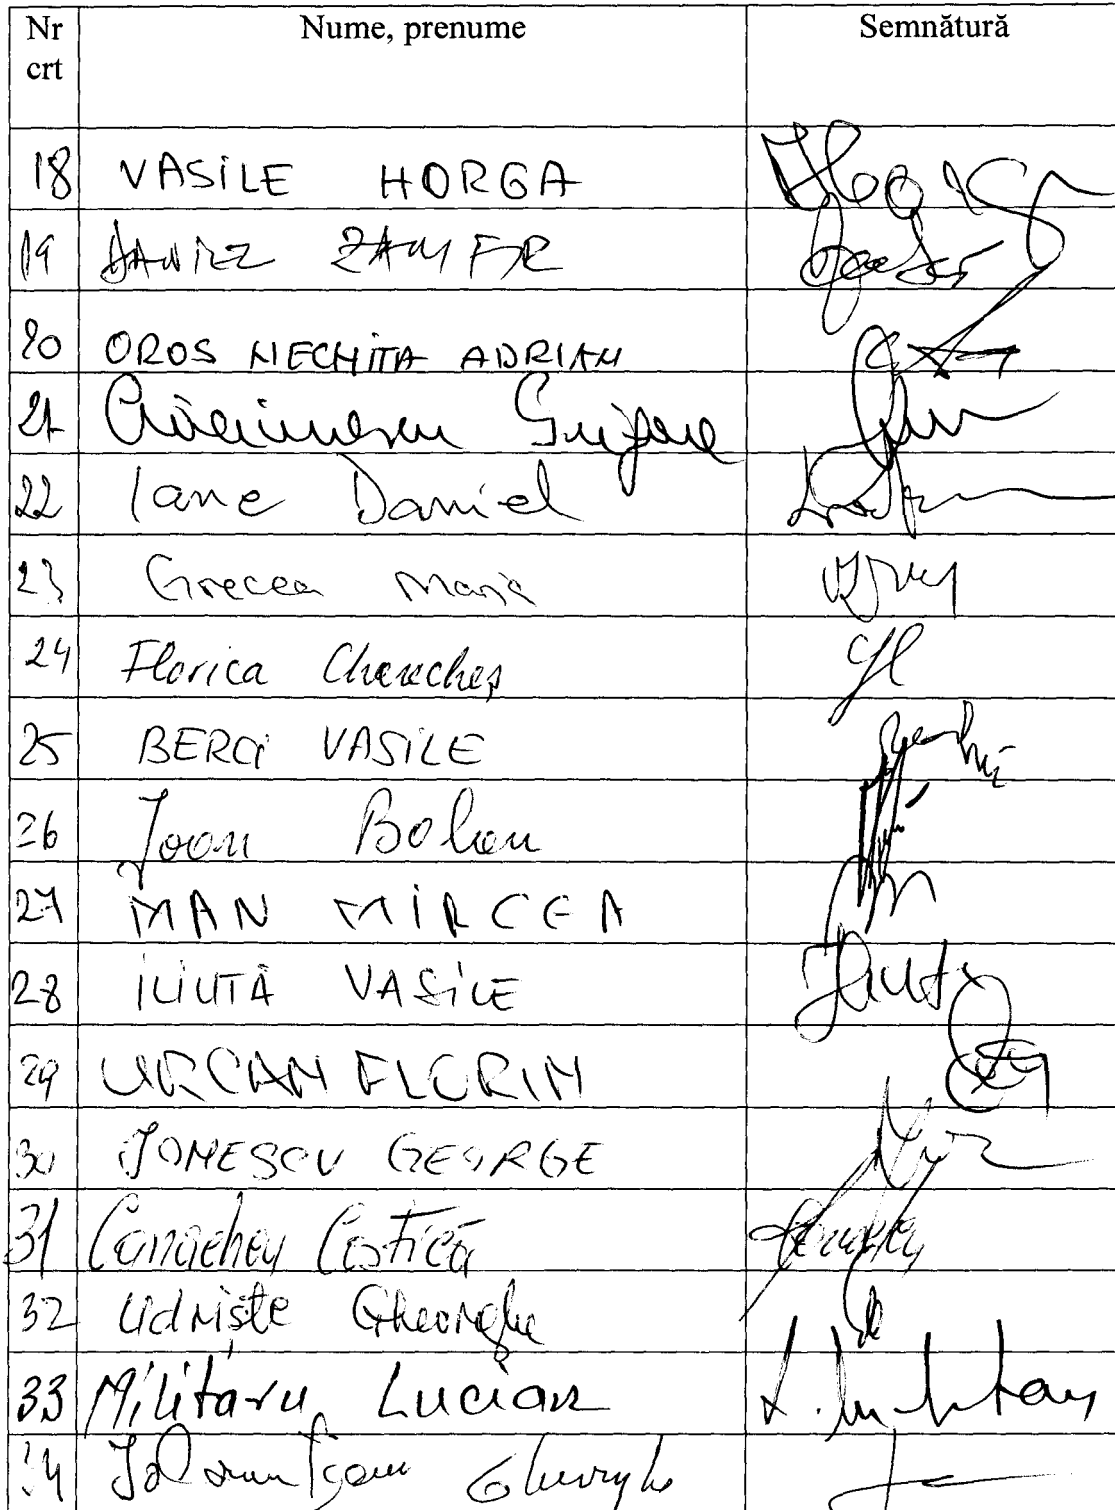 Nr crt Nume, prenume Semnătură
18 VASILE HORGA
19 DANIEL ZAMFIR
20 OROS NECHITA ADRIAN
21 Crăciunescu Grigore
22 Iane Daniel
23 Grecea Maria
24 Florica Cherecheș
25 BERCI VASILE
26 Ioan Balan
27 MAN MIRCEA
28 ILIUTĂ VASILE
29 URCAN FLORIN
30 IONESCU GEORGE
31 Canacheu Costică
32 Udriște Gheorghe
33 Militaru Lucian
34 Gheorghe